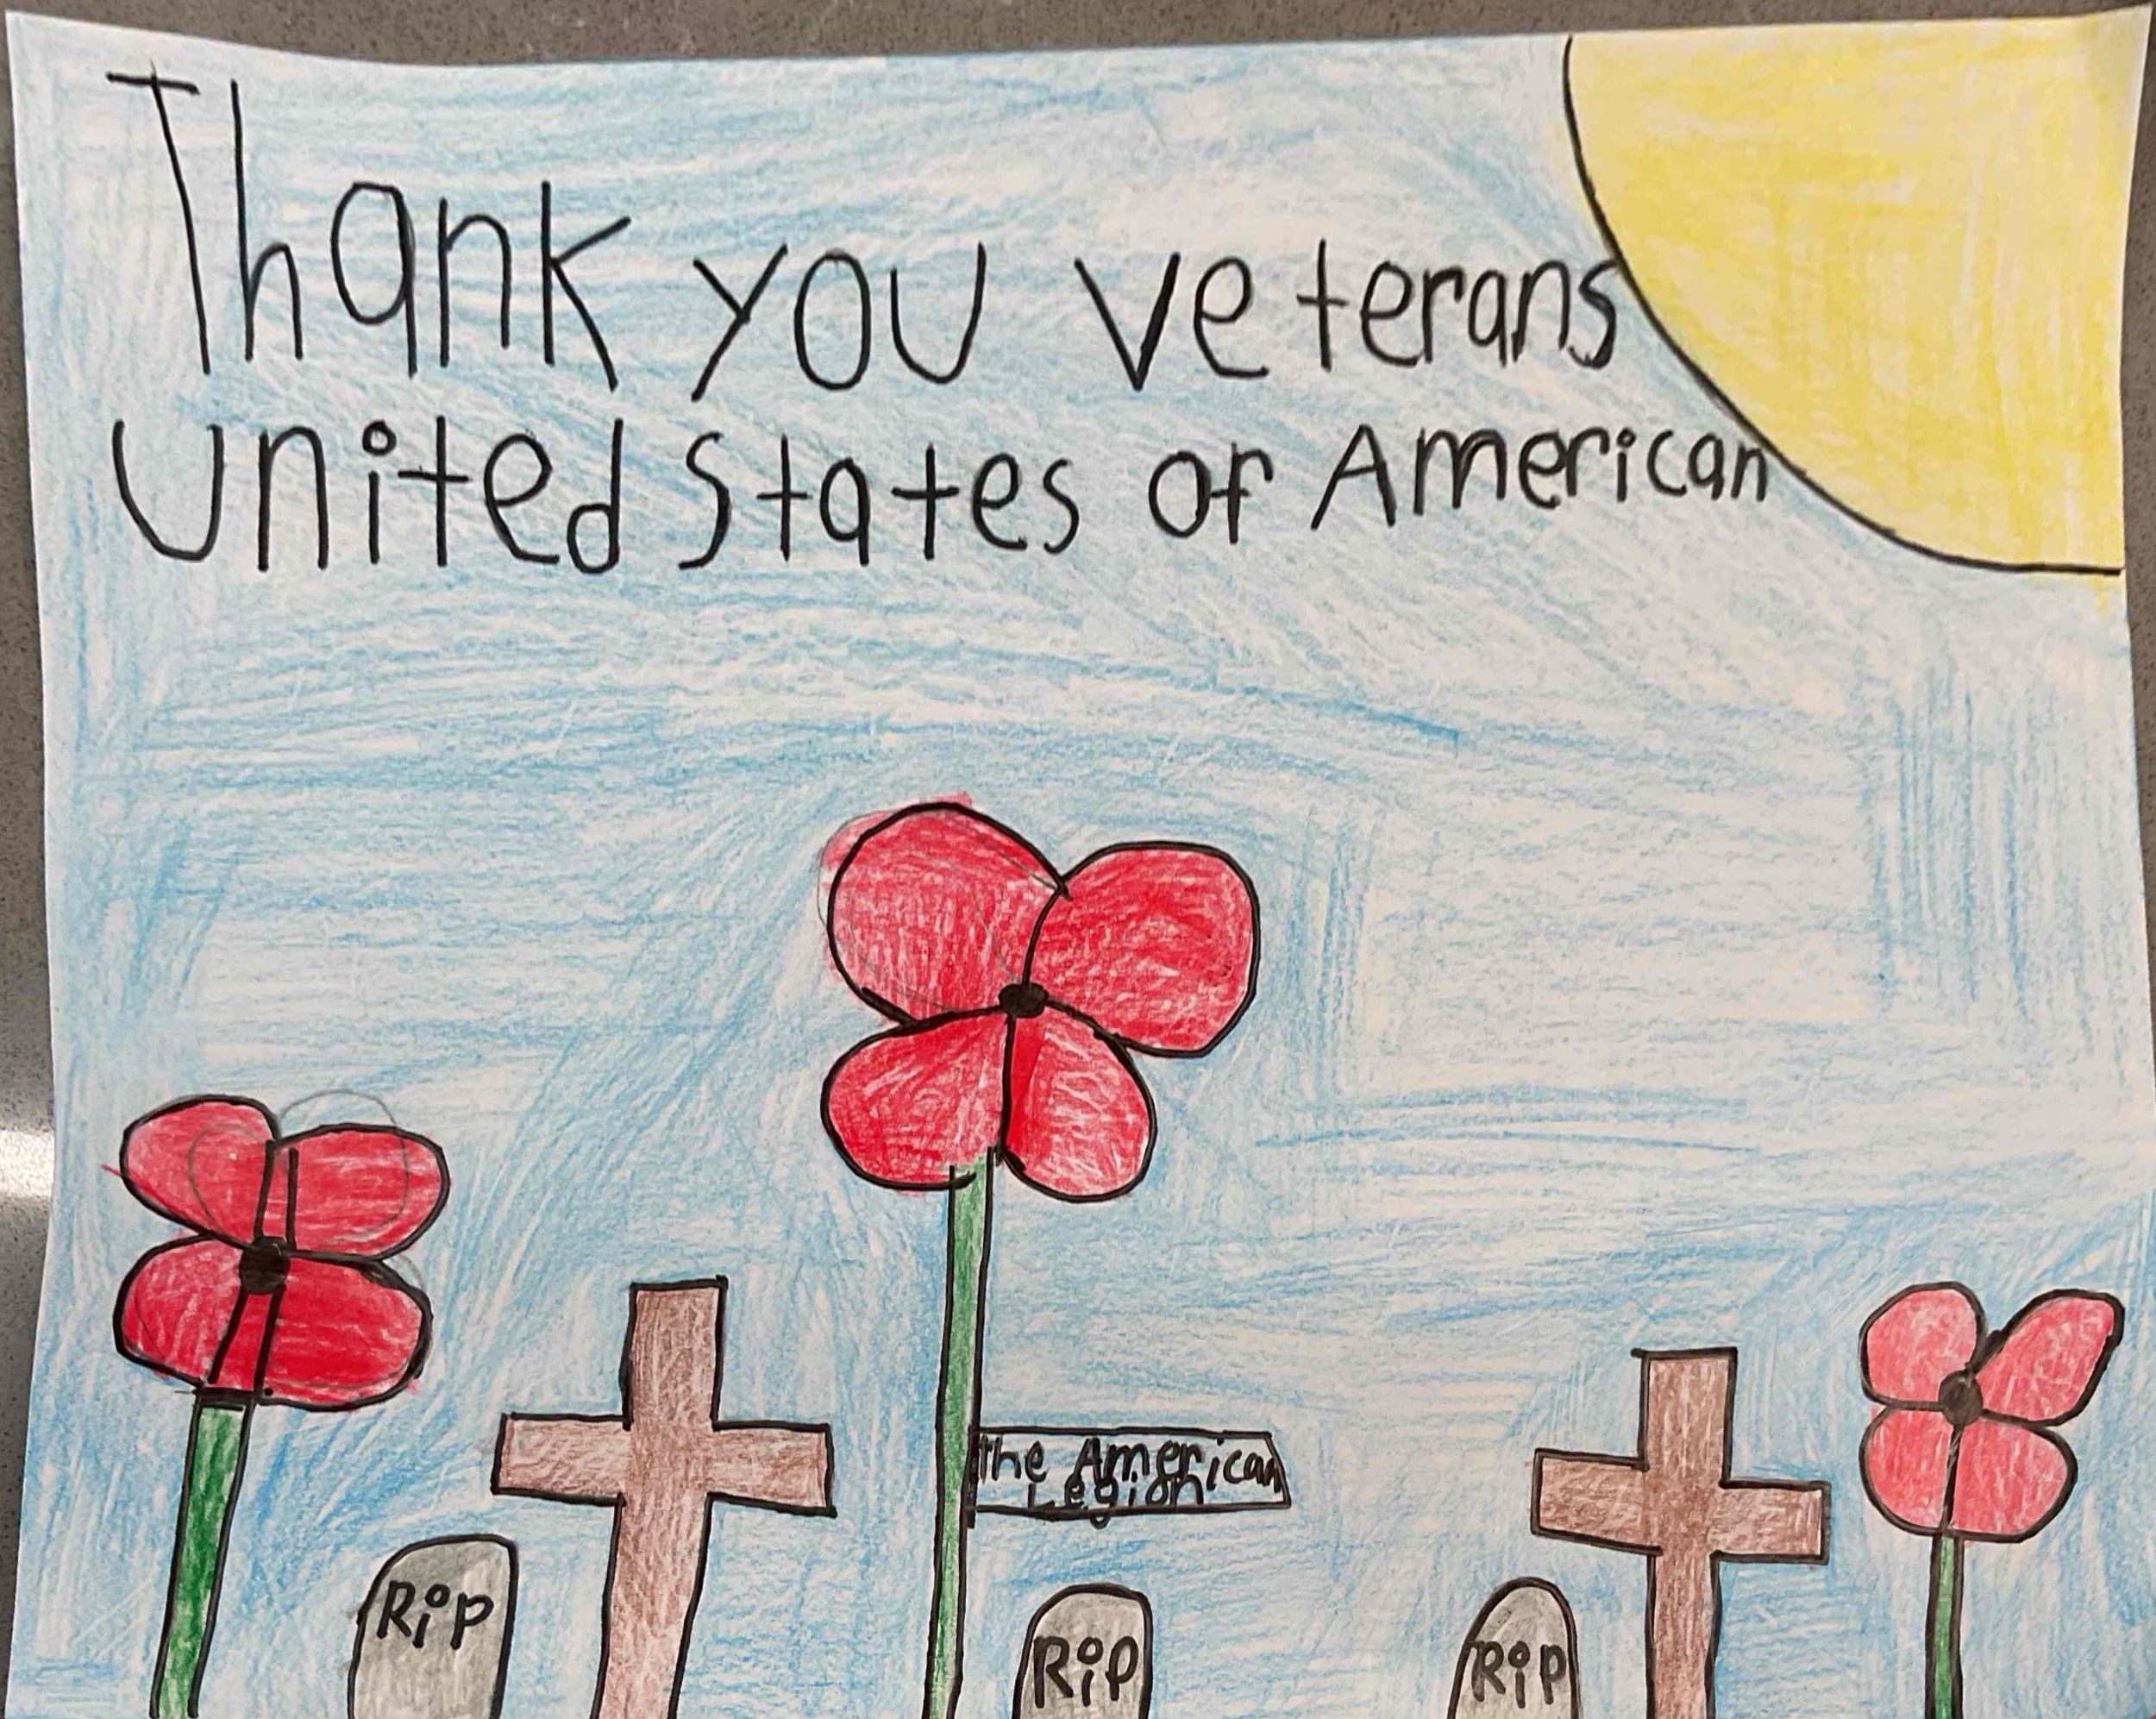 Thank you veterans
United States of American
The American
Legion
Rip
Rip
Rip